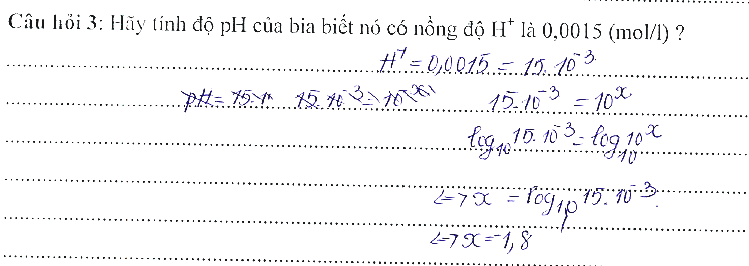 Câu hỏi 3: Hãy tính độ pH của bia biết nó có nồng độ H⁺ là 0,0015 (mol/l) ?
H⁺ = 0,0015 = 15.10⁻³
15.10⁻³ = 10ˣ
log₁₀ 15.10⁻³ = log₁₀ 10ˣ
<-> x = log₁₀ 15.10⁻³.
<-> x = -1,8